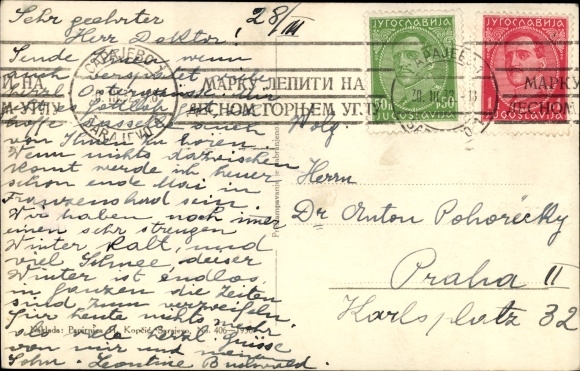 Sehr geehrter
Herr Doktor!
28/III
Sende Ihnen wenn
auch verspätet
hoffe
von Ihnen zu hören.
Wenn nichts dazwischen
komt werde ich heuer
schon ende Mai in
Franzensbad sein.
Wir haben noch imer
einen sehr strengen
Winter kalt, und
viel Schnee dieser
Winter ist endlos,
im ganzen die Zeiten
sind zum verzweifeln.
Für heute nichts mehr
viele herzl. Grüsse
von mir und meinem
Sohn. Leontine
Naklada: Papirnica H. Kopčić, Sarajevo, No. 406-1930
Preštampavanje je zabranjeno
ЈУГОСЛАВИЈА
1.50
JUGOSLAVIJA
ЈУГОСЛАВИЈА
1
JUGOSLAVIJA
САРАЈЕВО
SARAJEVO
МАРКУ ЛЕПИТИ НА
ДЕСНОМ ГОРЊЕМ УГЛУ
МАРКУ
ДЕСНОМ
Wolg.
Herrn
Dr Anton Pohořecky
Praha II
Karlsplatz 32